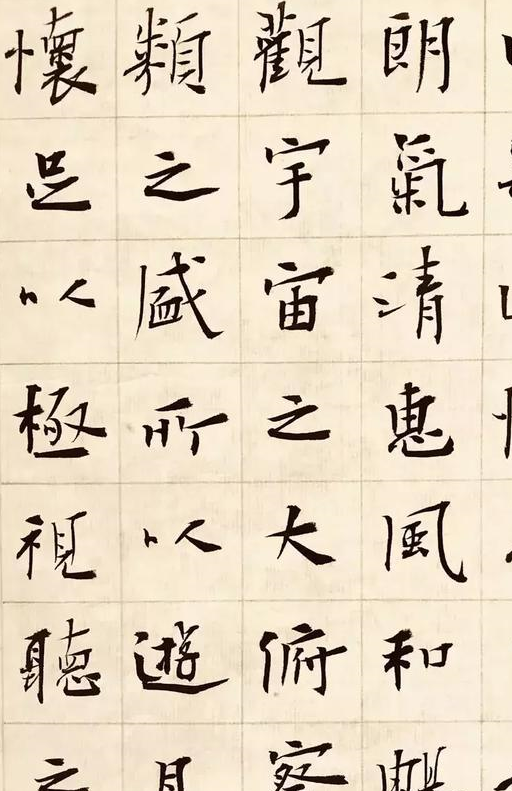 朗氣清惠風和暢
觀宇宙之大俯察
類之盛所以遊目
懷足以極視聽之